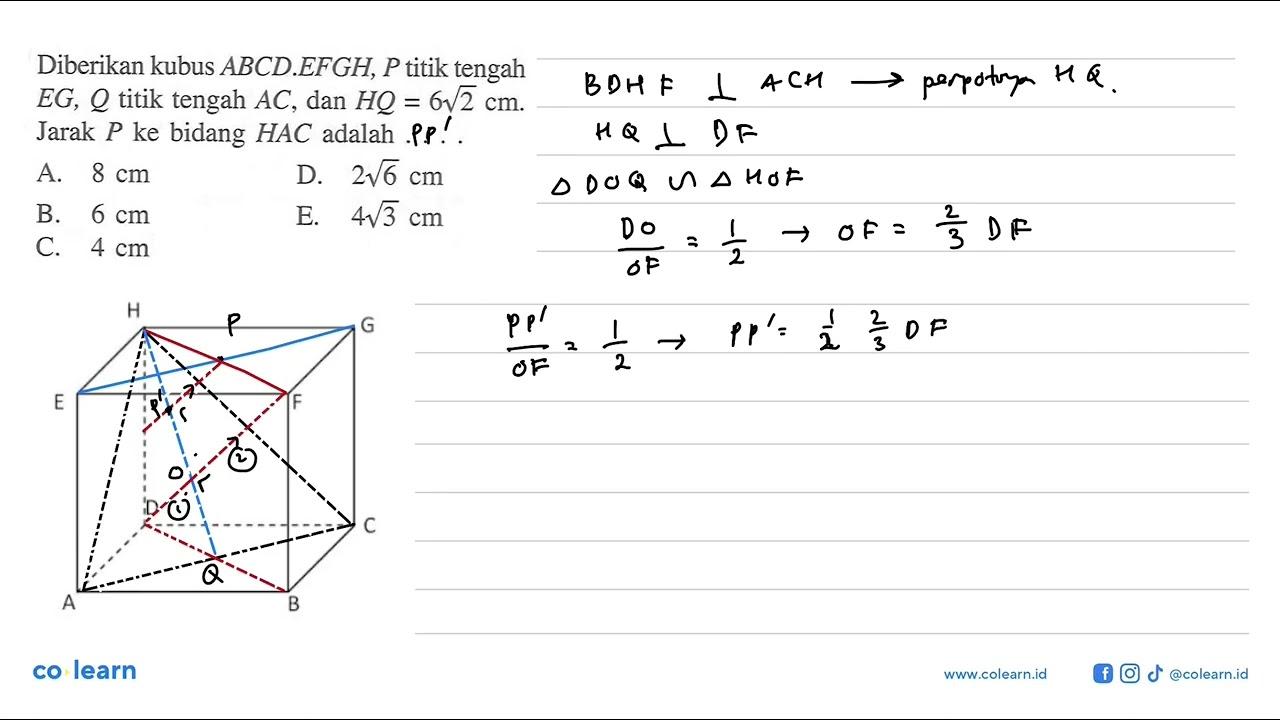 Diberikan kubus ABCD.EFGH, P titik tengah
EG, Q titik tengah AC, dan HQ = 6√2 cm.
Jarak P ke bidang HAC adalah .PP'. .
A. 8 cm
B. 6 cm
C. 4 cm
D. 2√6 cm
E. 4√3 cm
BDHF ⊥ ACH → perpotnya HQ.
HQ ⊥ DF
△ DOQ ∽ △ HOF
DO/OF = 1/2 → OF = 2/3 DF
PP'/OF = 1/2 → PP' = 1/2 2/3 DF
H
P
G
E
F
P'
O
2
D
1
C
Q
A
B
co learn
www.colearn.id
@colearn.id